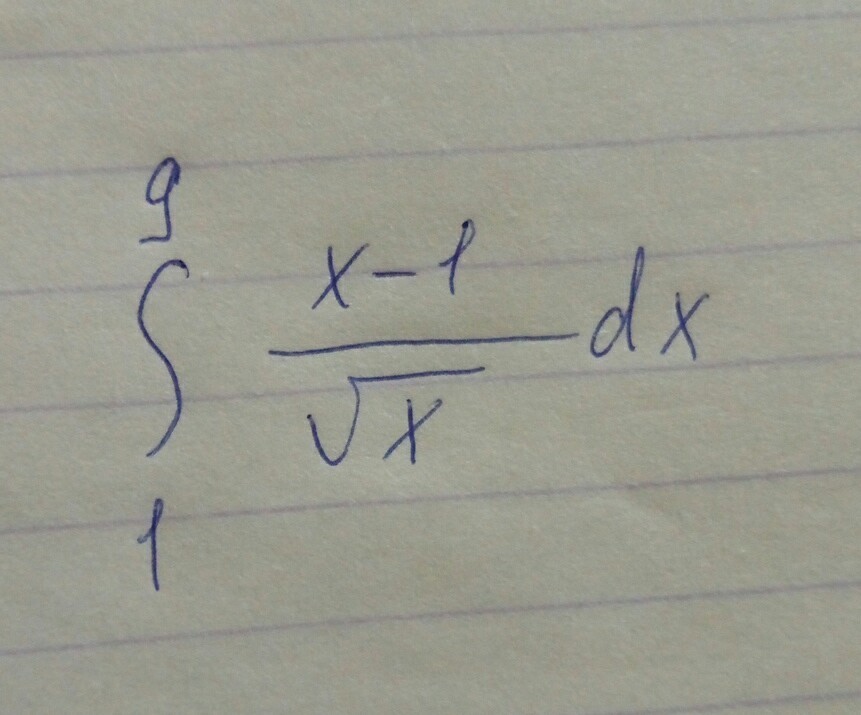 ∫₁⁹ (x-1)/√x dx